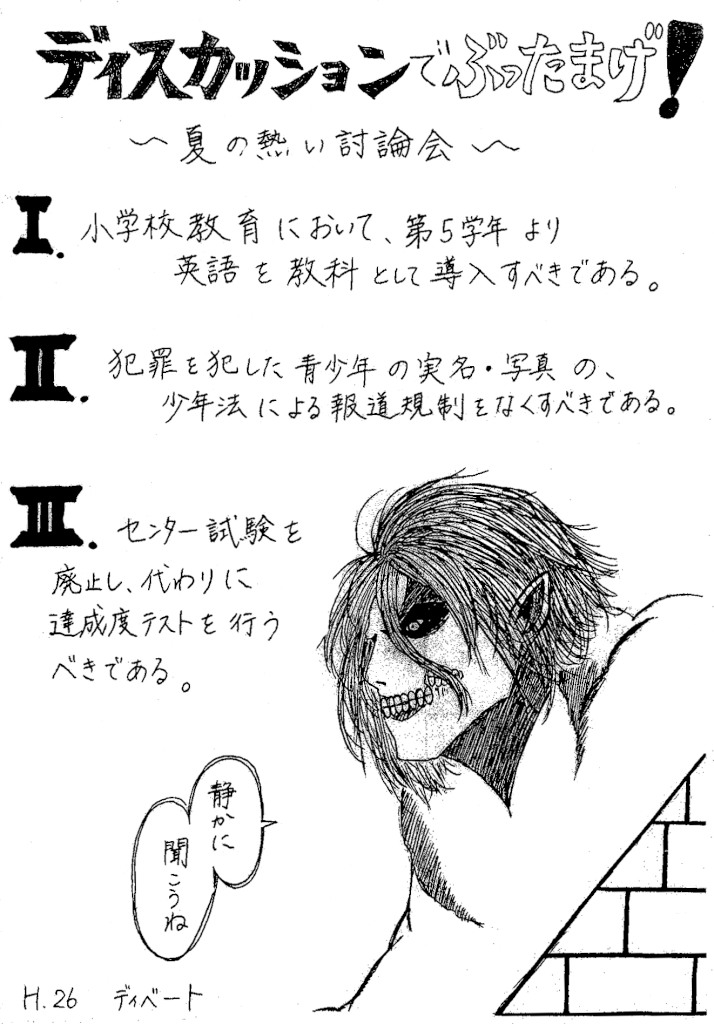 ディスカッションでぶったまげ!
～夏の熱い討論会～
I. 小学校教育において、第5学年より
英語を教科として導入すべきである。
II. 犯罪を犯した青少年の実名・写真の、
少年法による報道規制をなくすべきである。
III. センター試験を
廃止し、代わりに
達成度テストを行う
べきである。
静かに
聞こうね
H.26 ディベート